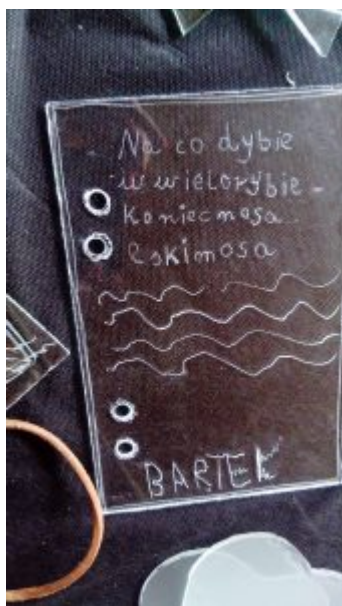 Na co dybie
w wielorybie -
koniec nosa
eskimosa
BARTEK